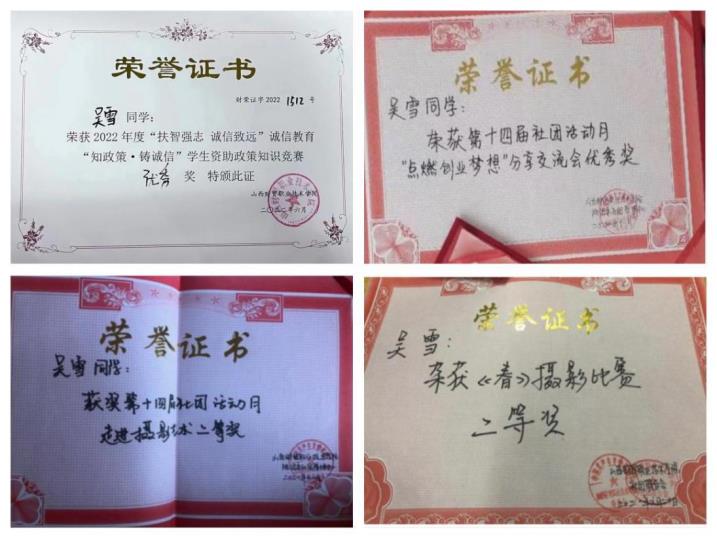 荣誉证书
财荣证字 2022 1512 号
吴雪 同学：
荣获 2022 年度“扶智强志 诚信致远”诚信教育
“知政策·铸诚信”学生资助政策知识竞赛
优秀 奖 特颁此证
山西财贸职业技术学院
二〇二二年六月
荣誉证书
吴雪同学：
荣获第十四届社团活动月
“点燃创业梦想”分享交流会优秀奖
荣誉证书
吴雪同学：
获奖第十四届社团活动月
走进摄影艺术二等奖
荣誉证书
吴雪：
荣获《春》摄影比赛
二等奖